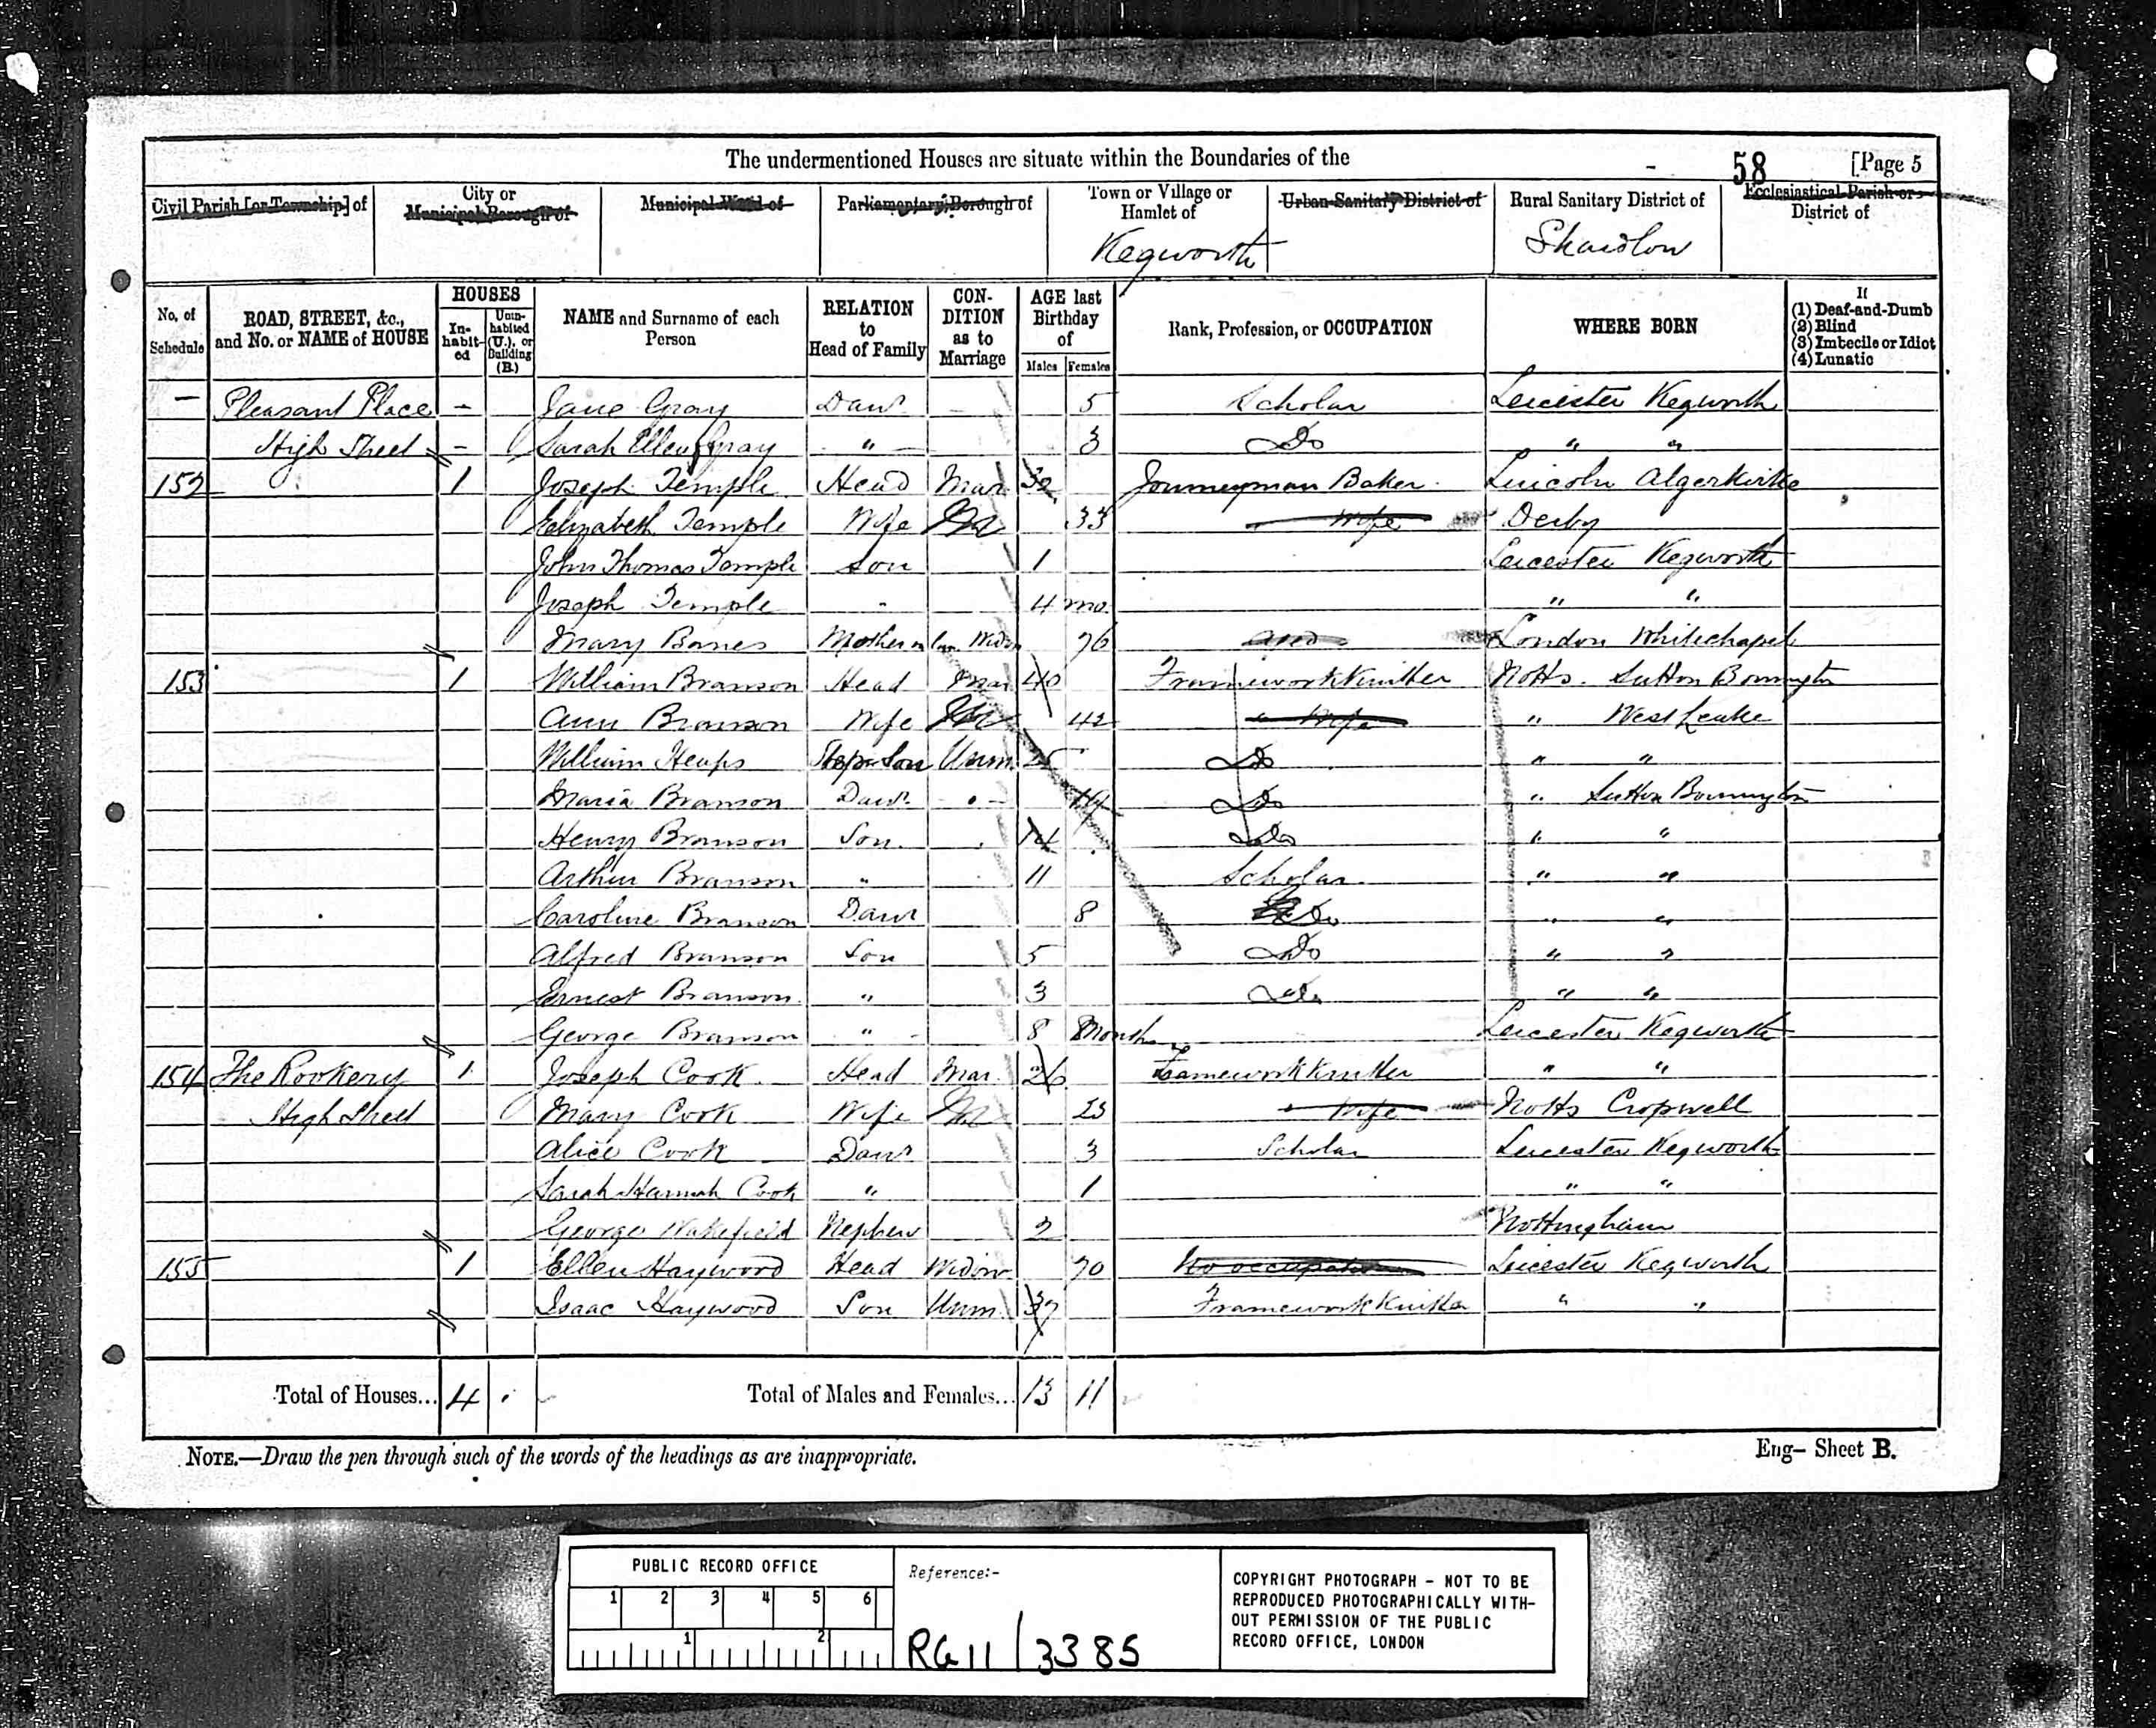 The undermentioned Houses are situate within the Boundaries of the
58 [Page 5
Civil Parish [or Township] of
City or Municipal Borough of
Municipal Ward of
Parliamentary Borough of
Town or Village or Hamlet of
Kegworth
Urban Sanitary District of
Rural Sanitary District of
Shardlow
Ecclesiastical Parish or District of
No. of Schedule
ROAD, STREET, &c., and No. or NAME of HOUSE
HOUSES
In-habit-ed
Unin-habited (U.), or Building (B.)
NAME and Surname of each Person
RELATION to Head of Family
CON-DITION as to Marriage
AGE last Birthday of
Males Females
Rank, Profession, or OCCUPATION
WHERE BORN
If
(1) Deaf-and-Dumb
(2) Blind
(3) Imbecile or Idiot
(4) Lunatic
— Pleasant Place – Jane Gray Daur 5 Scholar Leicester Kegworth
High Street – Sarah Ellen Gray " 3 Do " "
152 1 Joseph Temple Head Mar 32 Journeyman Baker Lincoln Algerkirke
Elizabeth Temple Wife Mar 33 Wife Derby
John Thomas Temple Son 1 Leicester Kegworth
Joseph Temple " 4 mo. " "
Mary Mother in law Widow 76 London Whitechapel
153 1 William Branson Head Mar 40 Framework Knitter Notts. Sutton Bonnington
Ann Branson Wife Mar 42 " Wife " West Leake
William Heaps Step-Son Unm. 25 Do " "
Maria Branson Daur. Do " Sutton Bonnington
Henry Branson Son. 14 Do " "
Arthur Branson " 11 Scholar " "
Caroline Branson Daur 8 Do " "
Alfred Branson Son 5 Do " "
Ernest Branson " 3 Do " "
George Branson " 8 Months Leicester Kegworth
154 The Rookery 1 Joseph Cook Head Mar. 26 Framework Knitter " "
High Street Mary Cook Wife Mar 23 " Wife Notts Cropwell
Alice Cook Daur 3 Scholar Leicester Kegworth
Sarah Hannah Cook " 1 " "
George Wakefield Nephew 2 Nottingham
155 1 Ellen Haywood Head Widow 70 No occupation Leicester Kegworth
Isaac Haywood Son Unm. 37 Framework Knitter " "
Total of Houses... 4
Total of Males and Females... 13 11
NOTE.—Draw the pen through such of the words of the headings as are inappropriate.
Eng– Sheet B.
PUBLIC RECORD OFFICE
1 2 3 4 5 6
1 2
Reference:-
RG 11/3385
COPYRIGHT PHOTOGRAPH – NOT TO BE
REPRODUCED PHOTOGRAPHICALLY WITH-
OUT PERMISSION OF THE PUBLIC
RECORD OFFICE, LONDON